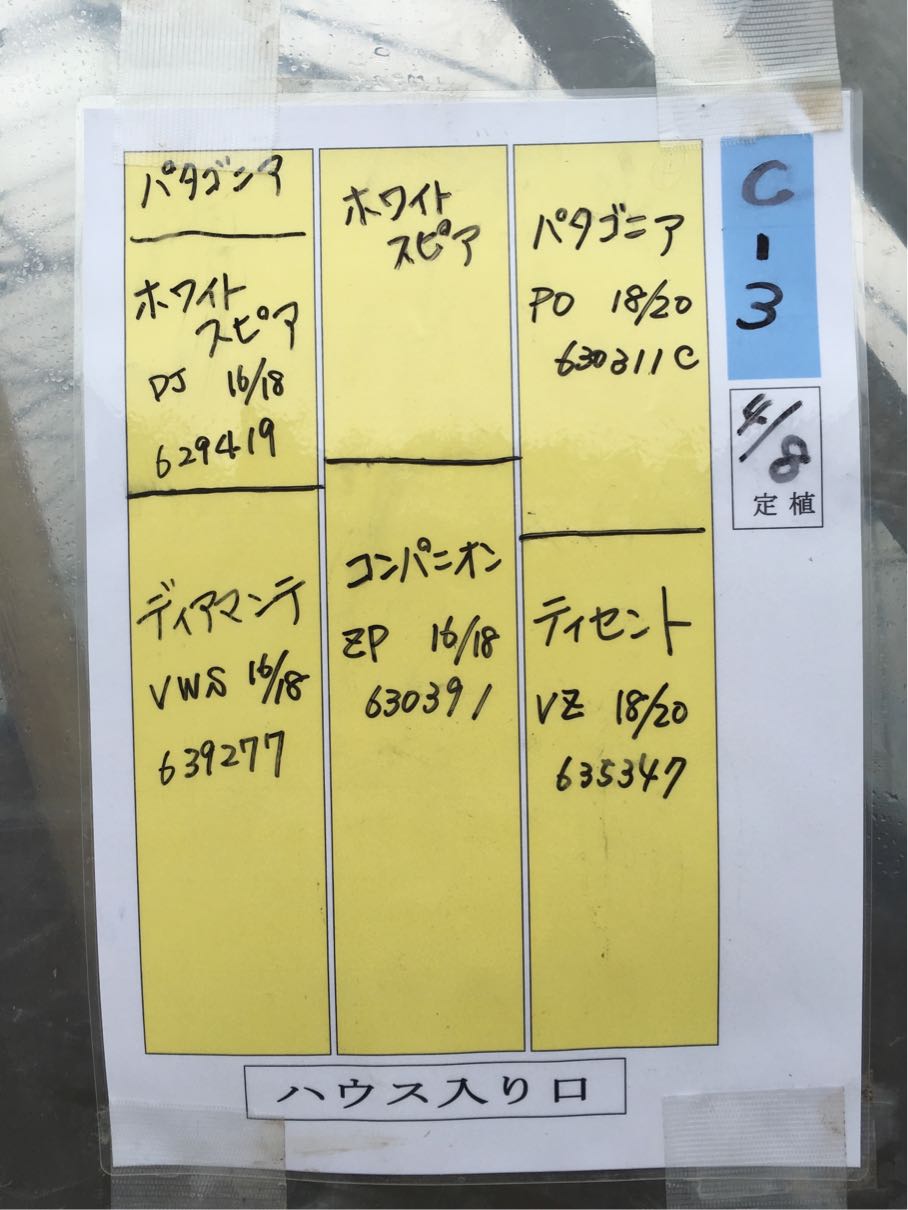 パタゴニア
ホワイト
スピア
DJ 16/18
629419
ディアマンテ
VWS 16/18
639277
ホワイト
スピア
コンパニオン
ZP 16/18
630391
パタゴニア
PO 18/20
630311C
ティセント
VZ 18/20
635347
C-3
4/8
定植
ハウス入り口